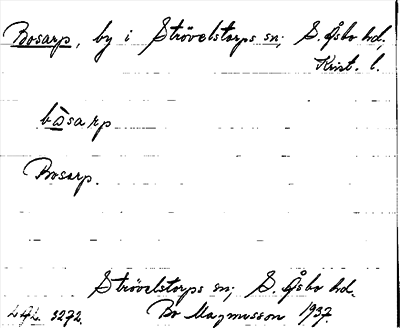 Bosarp, by i Strövelstorps sn; S. Åsbo hd,
Krist. l.
bòsarp
Bosarp.
Strövelstorps sn; S. Åsbo hd.
3272. Bo Magnusson 1937.